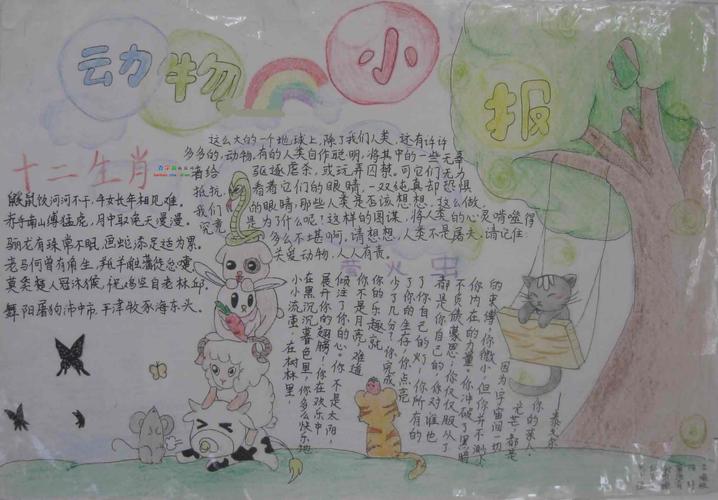 动物小报
十二生肖
鼹鼠饮河河不干,牛女长年相见难。
赤手南山缚猛虎,月中取兔天漫漫。
骊龙有珠常不眠,画蛇添足适为累。
老马何曾有角生,羝羊触藩徒忿嚏。
莫笑人冠沐猴,祝鸡空自老林邱。
舞阳屠狗沛中市,平津牧豕海东头。
这么大的一个地球上,除了我们人类,还有许许
多多的,动物,有的人类自作聪明,将其中的一些无辜
者给 驱逐虐杀,或玩弄囚禁,可它们无力
抵抗, 看看它们的眼睛,一双纯真却恐惧
我们 的眼睛,那些人类是否该想想,这么做,
究竟 是为了什么呢?这样的图谋,将人类的心灵啃噬得
多么不堪啊,请想想,人类不是屠夫,请记住,
关爱动物,人人有责。
萤火虫
小小流萤,在树林里,
在黑沉沉暮色里,你多么快乐地
展开你的翅膀!你在欢乐中
倾注了你的心。你不是太阳,
你不是月亮,难道
你的乐趣就
少了几分?你完成
了你的生存,你点亮
了你自己的灯;你所有的
都是你自己的,你对谁也
不负债蒙恩;你仅仅服从了
你内在的力量。你冲破了黑暗
的束缚,你微小,但你并不渺小,
因为宇宙间一切
光芒,都是
你的亲人。
——泰戈尔